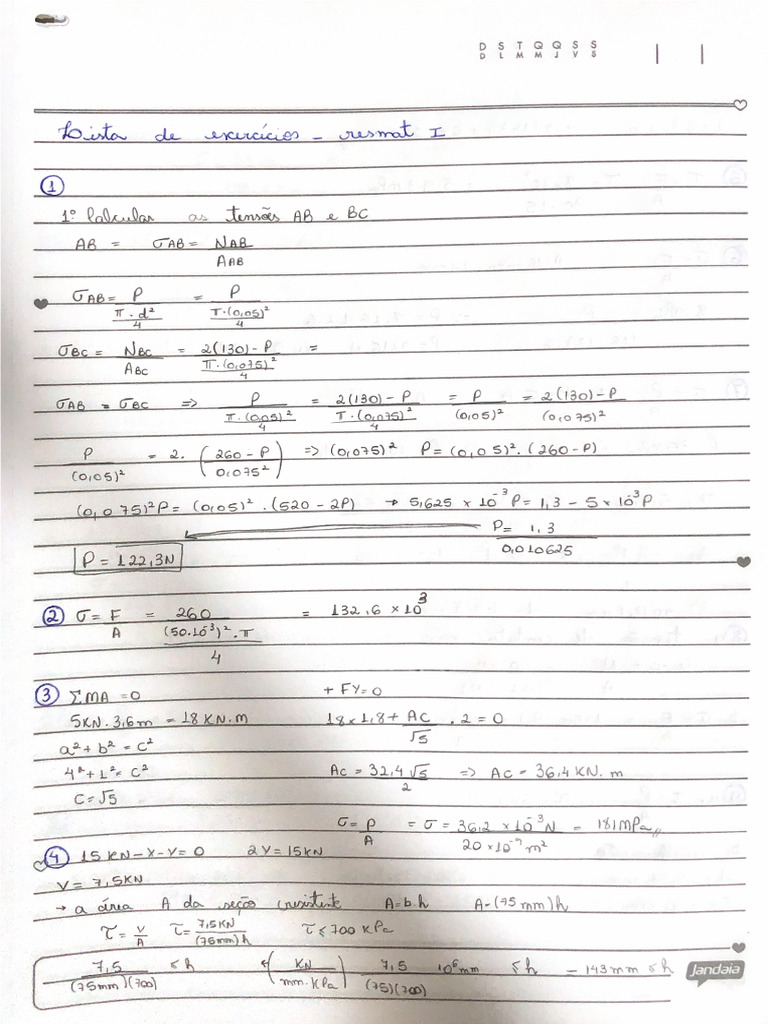 D S T Q Q S S
D L M M J V S
Lista de exercícios - resmat I
1
1º Calcular as tensões AB e BC
AB = σAB = NAB / AAB
σAB = P / (π·d²/4) = P / (π·(0,05)²/4)
σBC = NBC / ABC = 2(130) - P / (π·(0,075)²/4) =
σAB = σBC => P / (π·(0,05)²/4) = 2(130) - P / (π·(0,075)²/4) = P / (0,05)² = 2(130) - P / (0,075)²
P / (0,05)² = 2. (260 - P / 0,075²) => (0,075)² P = (0,05)². (260 - P)
(0,075)² P = (0,05)² . (520 - 2P) → 5,625 × 10⁻³ P = 1,3 - 5 × 10⁻³ P
P = 1,3 / 0,010625
P = 122,3N
2 σ = F / A = 260 / ((50.10³)² . π / 4) = 132,6 × 10³
3 ΣMA = 0 + FY = 0
5KN . 3,6m = 18 KN.m 18 × 1,8 + AC / √5 . 2 = 0
a² + b² = c²
4² + 1² = c² AC = 32,4 √5 / 2 => AC = 36,4 KN. m
C = √5
σ = P / A = σ = 36,2 × 10⁻³ N / 20 × 10⁻⁹ m² = 181MPa
4 15 KN - X - Y = 0 2Y = 15KN
V = 7,5KN
→ a área A da seção resistente A = b.h A = (75 mm)h
τ = V / A τ = 7,5KN / (75mm)h τ ≤ 700 KPa
7,5 / (75mm)(700) ≤ h ← (KN / mm.KPa) 7,5 / (75)(700) 10⁶mm ≤ h = 143mm ≤ h
Jandaia